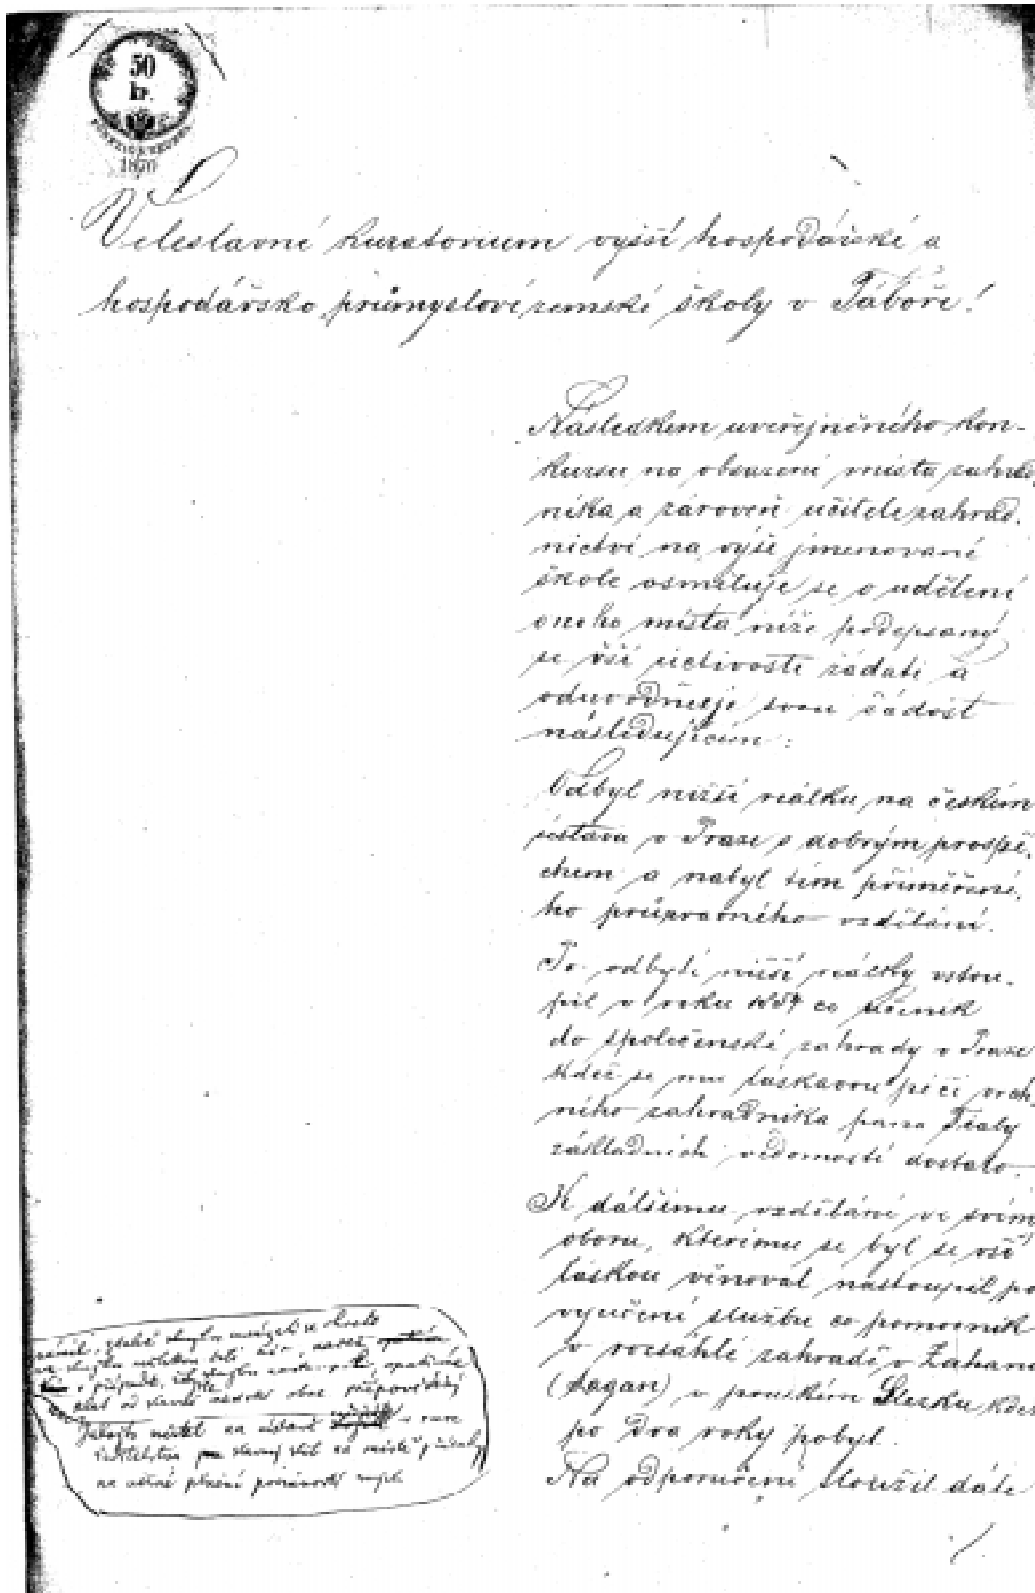 50
kr.
1870
Veleslavné kuratorium vyšší hospodářské a
hospodářsko průmyslové zemské školy v Táboře!
Následkem uveřejněného kon-
kursu na obsazení místa zahrad
níka a zároveň učitele zahrad-
nictví na výše jmenované
škole osměluje se o udělení
onoho místa níže podepsaný
se vší uctivostí žádati a
odůvodňuje svou žádost
následujícím:
Odbyl nižší reálku na českém
ústavu v Praze s dobrým prospě-
chem a nabyl tím přiměřené-
ho průpravného vzdělání.
Po odbytí nižší reálky vstou-
pil v roku co učeník
do společenské zahrady v Praze
kdež se mu láskavou péčí vrch-
ního zahradníka pana Fialy
základních vědomostí dostalo.
K dalšímu vzdělání ve svém
oboru, kterému se byl se vší
láskou věnoval nastoupil po
vyučení službu co pomocník
v rozsáhlé zahradě v Zahani
(Sagan) v pruském Slezku kdež
po dva roky pobyl.
Na odporučení sloužil dále
na věrné plnění povinností mých
./.